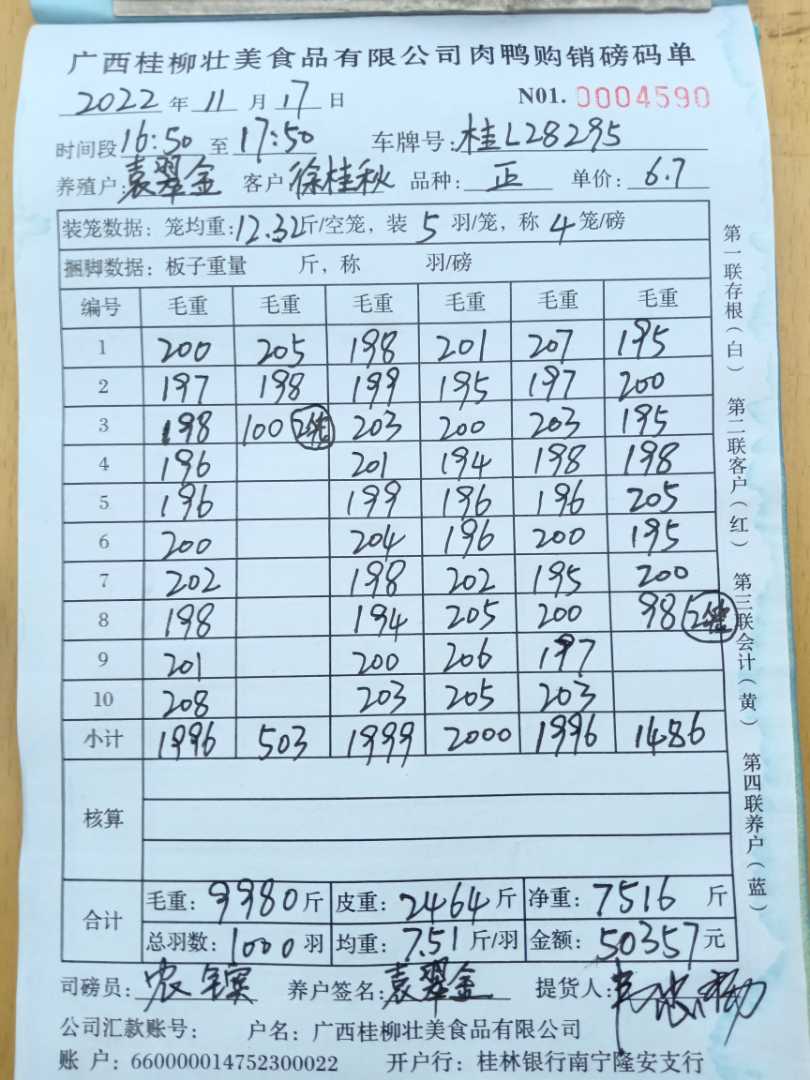 广西桂柳壮美食品有限公司肉鸭购销磅码单
2022 年 11 月 17 日 N01. 0004590
时间段 16:50 至 17:50 车牌号: 桂L28295
养殖户: 袁翠金 客户 徐桂秋 品种: 正 单价: 6.7
装笼数据: 笼均重: 12.32斤/空笼, 装 5 羽/笼, 称 4 笼/磅
捆脚数据: 板子重量 斤, 称 羽/磅
编号 毛重 毛重 毛重 毛重 毛重 毛重
1 200 205 198 201 207 195
2 197 198 199 195 197 200
3 198 100 203 200 203 195
4 196 201 194 198 198
5 196 199 196 196 205
6 200 204 196 200 195
7 202 198 202 195 200
8 198 194 205 200 98
9 201 200 206 197
10 208 203 205 203
小计 1996 503 1999 2000 1996 1486
核算
合计 毛重: 9980 斤 皮重: 2464 斤 净重: 7516 斤
总羽数: 1000 羽 均重: 7.51 斤/羽 金额: 50357 元
司磅员: 养户签名: 袁翠金 提货人:
公司汇款账号: 户名: 广西桂柳壮美食品有限公司
账 户: 660000014752300022 开户行: 桂林银行南宁隆安支行
第一联存根(白) 第二联客户(红) 第三联会计(黄) 第四联养户(蓝)